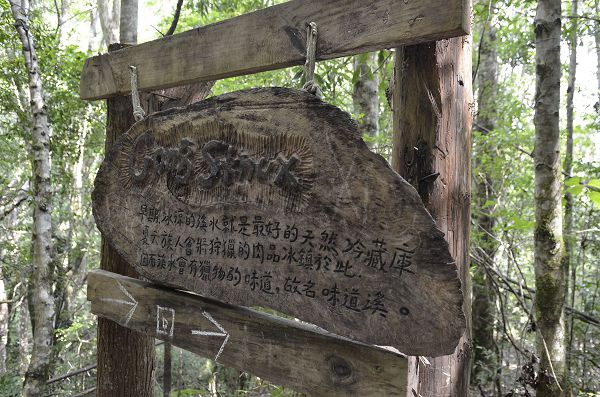 早期冰涼的溪水就是最好的天然冷藏庫
夏天族人會將狩獵的肉品冰鎮於此.
因而溪水會有獵物的味道，故名味道溪。